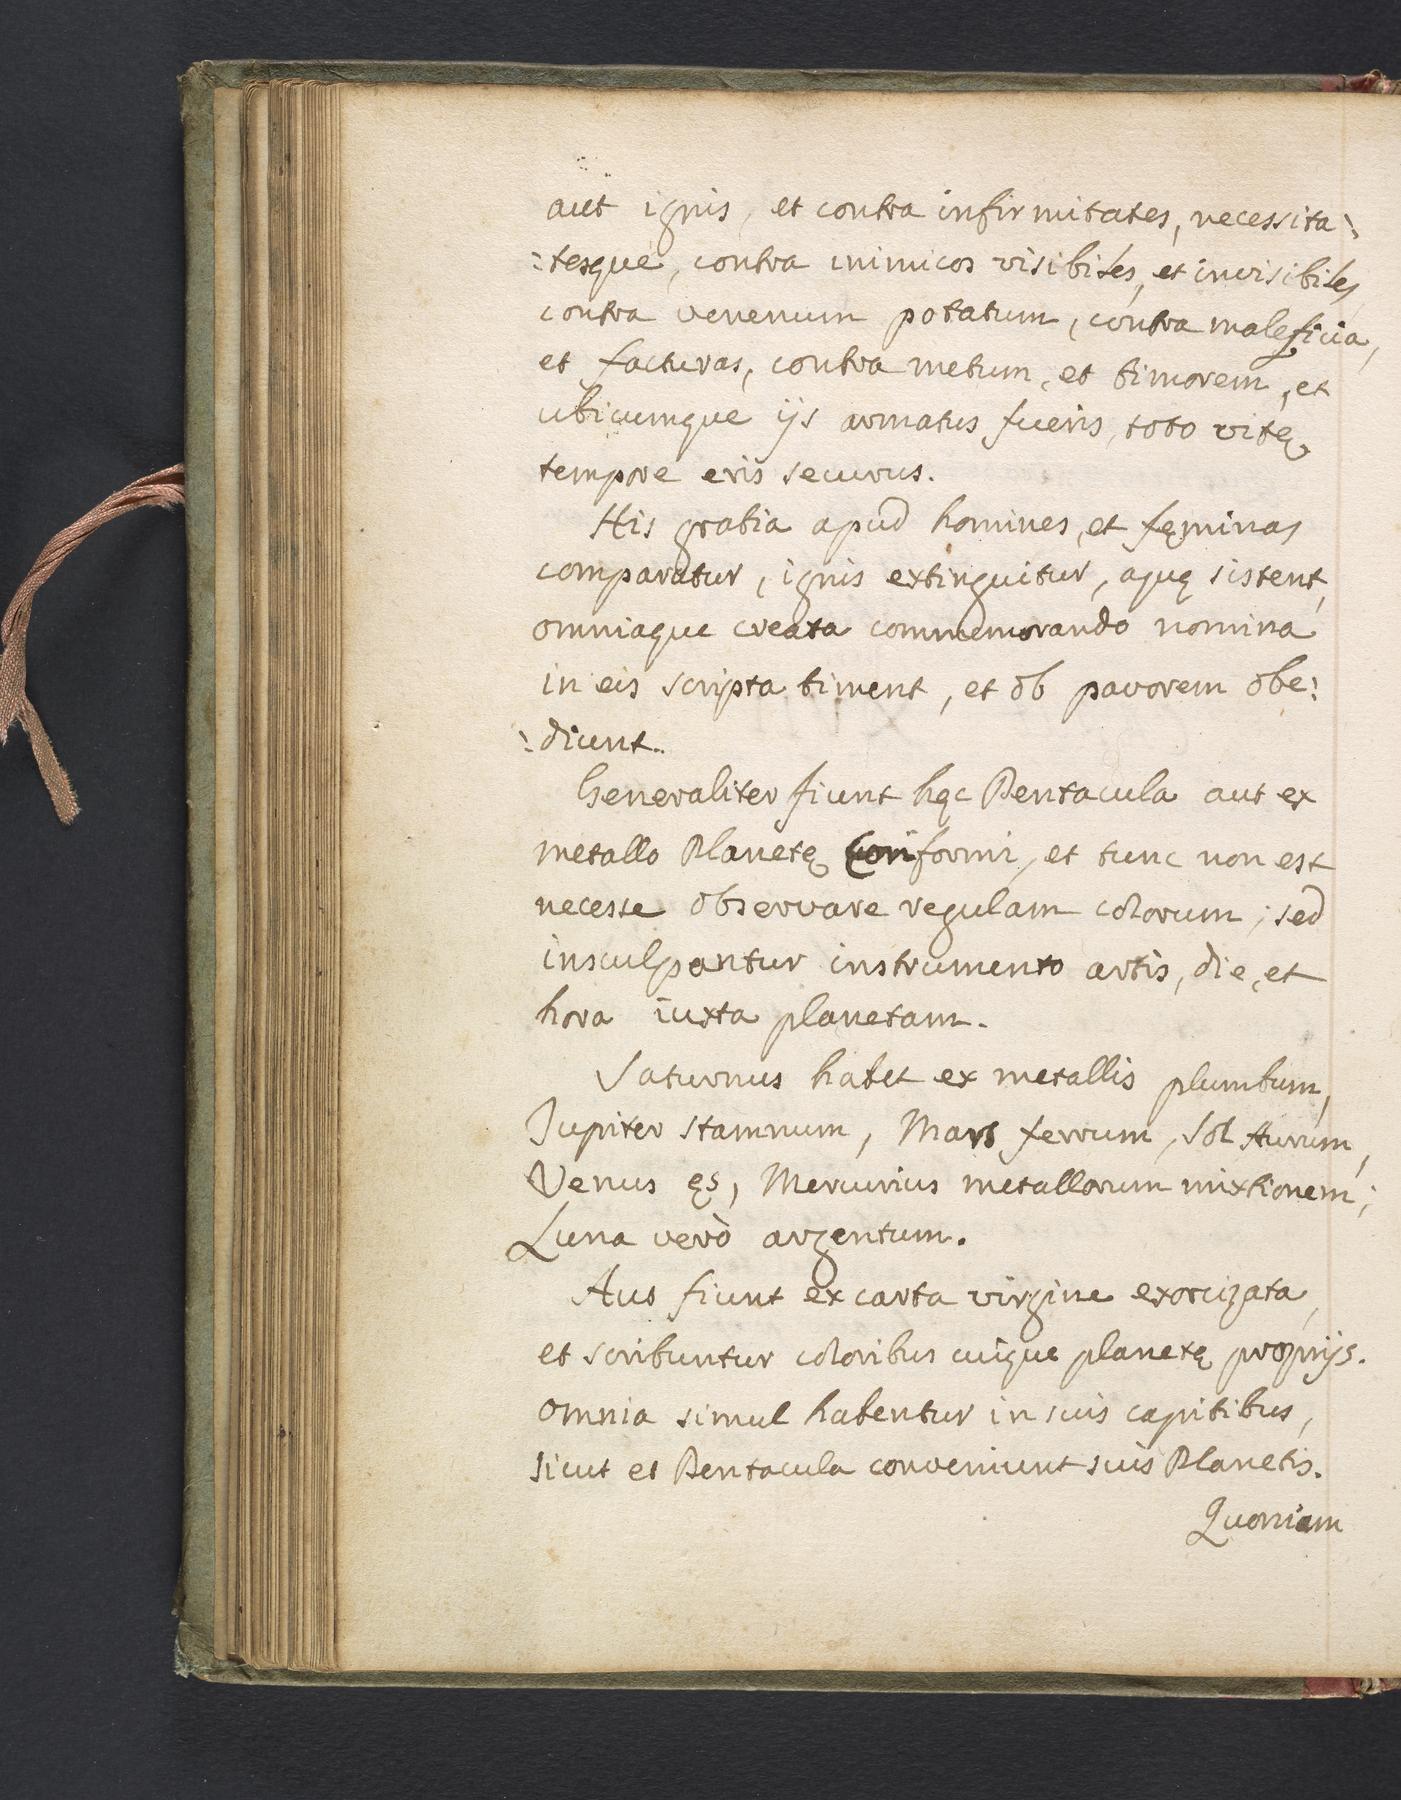 aut ignis, et contra infirmitates, necessita:
:tesque, contra inimicos visibiles, et invisibiles,
contra venenum potatum, contra maleficia,
et facturas, contra metum, et timorem, et
ubicumque ijs armatus fueris, toto vitę
tempore eris securus.
His gratia apud homines, et fęminas
comparatur, ignis extinguitur, aquę sistent,
omniaque creata commemorando nomina
in eis scripta timent, et ob pavorem obe:
:diunt.
Generaliter fiunt hęc Pentacula aut ex
metallo Planetę conformi, et tunc non est
necesse observare regulam colorum; sed
insculpantur instrumento artis, die, et
hora iuxta planetam.
Saturnus habet ex metallis plumbum,
Jupiter stamnum, Mars ferrum, Sol Aurum,
Venus ęs, Mercurius metallorum mixtionem;
Luna verò argentum.
Aut fiunt ex carta virgine exorcizata,
et scribuntur coloribus cuique planetę proprijs.
Omnia simul habentur in suis capitibus,
sicut et Pentacula conveniunt suis Planetis.
Quoniam